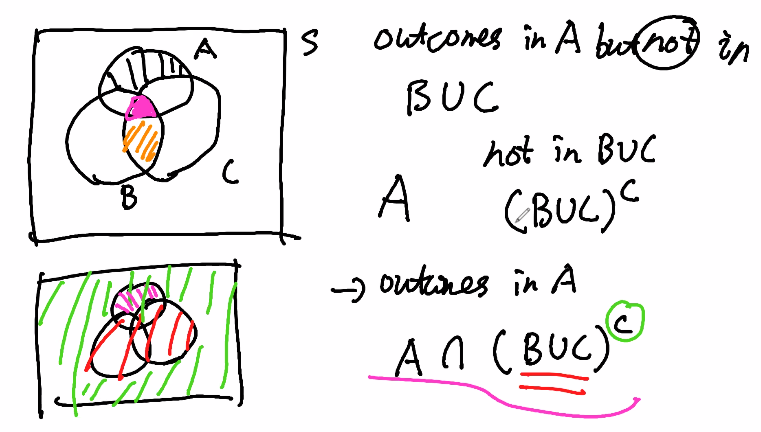 A
S
B
C
outcomes in A but not in
B U C
not in BUC
A (BUC)^c
→ outcomes in A
A ∩ (BUC)^c